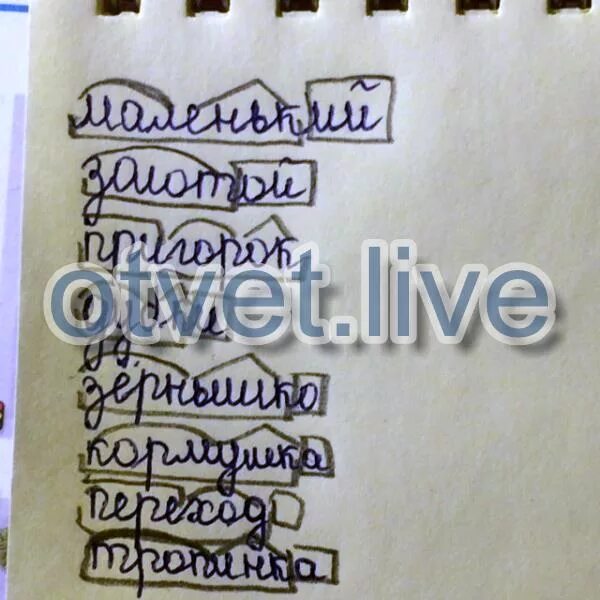 маленький
золотой
пригорок
otvet.live
зёрнышко
кормушка
переход
тропинка